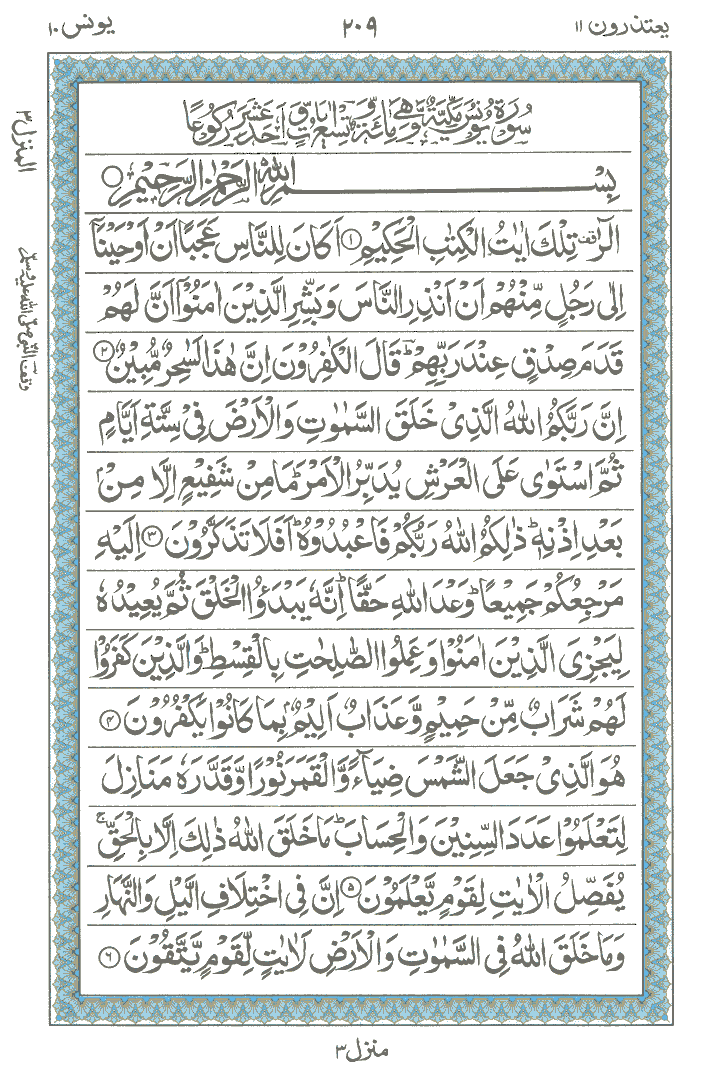 يعتذرون ١١
٢٠٩
يونس ١٠
سُوْرَةُ يُوْنُسَ مَكِّيَّةٌ وَّهِيَ مِائَةٌ وَّتِسْعُ اٰيَاتٍ وَّاَحَدَ عَشَرَ رُكُوْعًا
بِسْمِ اللّٰهِ الرَّحْمٰنِ الرَّحِيْمِ
الٓرٰ ۟ تِلْكَ اٰيٰتُ الْكِتٰبِ الْحَكِيْمِ ۝۱ اَكَانَ لِلنَّاسِ عَجَبًا اَنْ اَوْحَيْنَاۤ
اِلٰى رَجُلٍ مِّنْهُمْ اَنْ اَنْذِرِ النَّاسَ وَبَشِّرِ الَّذِيْنَ اٰمَنُوْۤا اَنَّ لَهُمْ
قَدَمَ صِدْقٍ عِنْدَ رَبِّهِمْ ؔؕ قَالَ الْكٰفِرُوْنَ اِنَّ هٰذَا لَسٰحِرٌ مُّبِيْنٌ ۝۲
اِنَّ رَبَّكُمُ اللّٰهُ الَّذِيْ خَلَقَ السَّمٰوٰتِ وَالْاَرْضَ فِيْ سِتَّةِ اَيَّامٍ
ثُمَّ اسْتَوٰى عَلَى الْعَرْشِ يُدَبِّرُ الْاَمْرَ ؕ مَا مِنْ شَفِيْعٍ اِلَّا مِنْۢ
بَعْدِ اِذْنِهٖ ؕ ذٰلِكُمُ اللّٰهُ رَبُّكُمْ فَاعْبُدُوْهُ ؕ اَفَلَا تَذَكَّرُوْنَ ۝۳ اِلَيْهِ
مَرْجِعُكُمْ جَمِيْعًا ؕ وَعْدَ اللّٰهِ حَقًّا ؕ اِنَّهٗ يَبْدَؤُا الْخَلْقَ ثُمَّ يُعِيْدُهٗ
لِيَجْزِيَ الَّذِيْنَ اٰمَنُوْا وَعَمِلُوا الصّٰلِحٰتِ بِالْقِسْطِ ؕ وَالَّذِيْنَ كَفَرُوْا
لَهُمْ شَرَابٌ مِّنْ حَمِيْمٍ وَّعَذَابٌ اَلِيْمٌۢ بِمَا كَانُوْا يَكْفُرُوْنَ ۝۴
هُوَ الَّذِيْ جَعَلَ الشَّمْسَ ضِيَآءً وَّالْقَمَرَ نُوْرًا وَّقَدَّرَهٗ مَنَازِلَ
لِتَعْلَمُوْا عَدَدَ السِّنِيْنَ وَالْحِسَابَ ؕ مَا خَلَقَ اللّٰهُ ذٰلِكَ اِلَّا بِالْحَقِّ ۚ
يُفَصِّلُ الْاٰيٰتِ لِقَوْمٍ يَّعْلَمُوْنَ ۝۵ اِنَّ فِي اخْتِلَافِ الَّيْلِ وَالنَّهَارِ
وَمَا خَلَقَ اللّٰهُ فِي السَّمٰوٰتِ وَالْاَرْضِ لَاٰيٰتٍ لِّقَوْمٍ يَّتَّقُوْنَ ۝۶
المنزل ٣
وقف النبي صلى الله عليه وسلم
منزل ٣